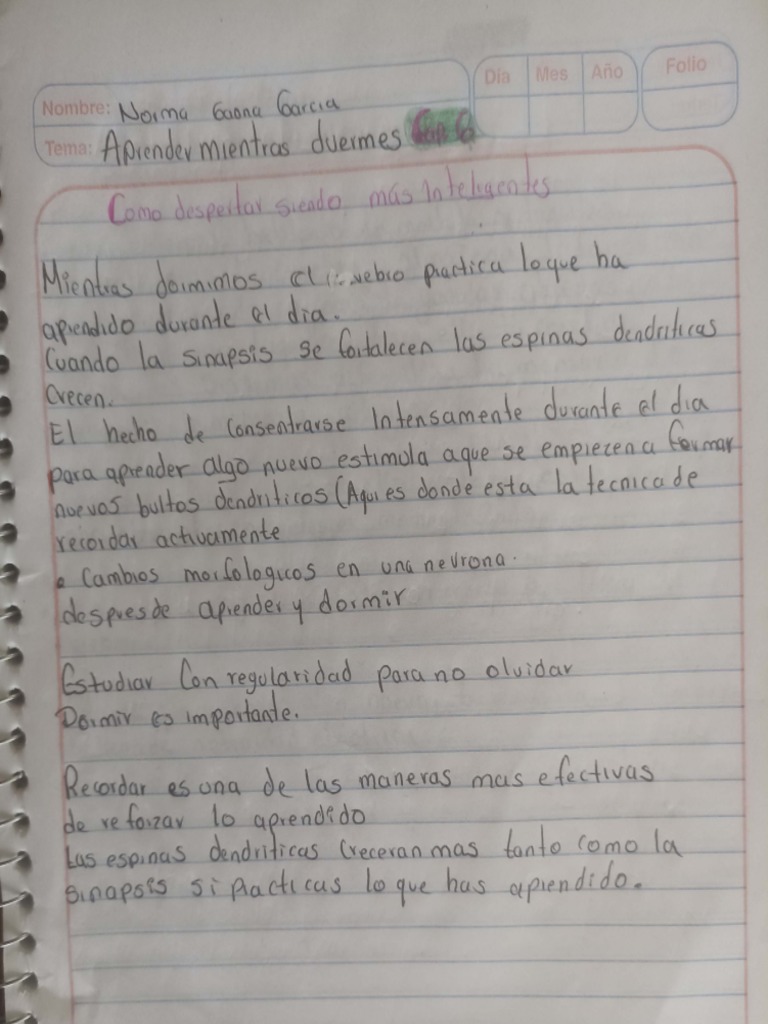 Día Mes Año Folio
Nombre: Norma Gaona Garcia
Tema: Aprender mientras duermes Cap 6
Como despertar siendo mas Inteligentes
Mientras dormimos el practica lo que ha
aprendido durante el dia.
Cuando la sinapsis se fortalecen las espinas dendriticas
Crecen.
El hecho de Consentrarse Intensamente durante el dia
para aprender algo nuevo estimula a que se empiezen a formar
nuevos bultos dendriticos (Aqui es donde esta la tecnica de
recordar activamente
• Cambios morfologicos en una neurona.
despres de aprender y dormir
Estudiar Con regularidad para no olvidar
Dormir es importante.
Recordar es una de las maneras mas efectivas
de reforzar lo aprendido
Las espinas dendriticas Creceran mas tanto como la
sinapsis si practicas lo que has aprendido.